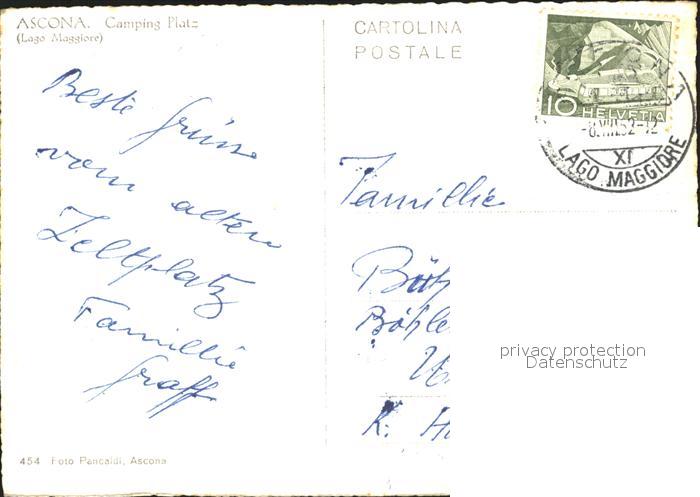 ASCONA. Camping Platz
(Lago Maggiore)
CARTOLINA
POSTALE
10 HELVETIA
-8.VIII.52-12
XI
LAGO MAGGIORE
Beste Grüsse
vom alten
Zeltplatz
Familie
Graff
Familie
K.
privacy protection
Datenschutz
454 Foto Pancaldi, Ascona